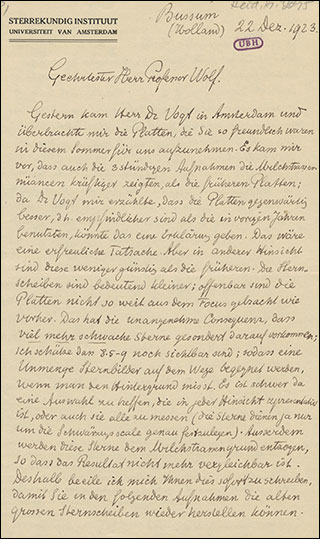 STERREKUNDIG INSTITUUT
UNIVERSITEIT VAN AMSTERDAM
Bussum
(Holland) 22 Dez. 1923.
UBH
Geehrtester Herr Professor Wolf.
Gestern kam Herr Dr Vogt in Amsterdam und
überbrachte mir die Platten, die Sie so freundlich waren
in diesem Sommer für uns aufzunehmen. Es kam mir
vor, dass auch die 3 stündigen Aufnahmen die Milchstrassen
nüancen kräftiger zeigten, als die früheren Platten;
da Dr Vogt mir erzählte, dass die Platten gegenwärtig
besser, d.h. empfindlicher sind als die in vorigen Jahren
benutzten, könnte das eine Erklärung geben. Das wäre
eine erfreuliche Tatsache. Aber in anderer Hinsicht
sind diese weniger günstig als die früheren. Die Stern
scheiben sind bedeutend kleiner; offenbar sind die
Platten nicht so weit aus dem Focus gebracht wie
vorher. Das hat die unangenehme Consequenz, dass
viel mehr schwache Sterne gesondert darauf vorkommen;
ich schätze dan 8.5-9 noch sichtbar sind; sodass eine
Unmenge Sternbilder auf dem Wege begegnet werden,
wenn man den Hintergrund misst. Es ist schwer da
eine Auswahl zu treffen, die in jeder Hinsicht representativ
ist, oder auch sie alle zu messen (die Sterne dienen ja nur
um die Schwärzungsscale genau festzulegen). Ausserdem
werden diese Sterne dem Milchstrassengrund entzogen,
so dass das Resultat nicht mehr vergleichbar ist.
Deshalb beeile ich mich Ihnen dies sofort zu schreiben,
damit Sie in den folgenden Aufnahmen die alten
grossen Sternscheiben wieder herstellen können.